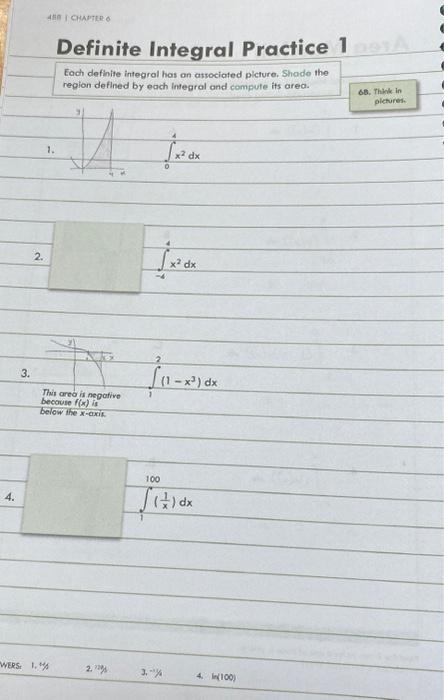 488 | CHAPTER 6
Definite Integral Practice 1
Each definite integral has an associated picture. Shade the
region defined by each integral and compute its area.
6B. Think in
pictures.
1.
y
4
x
4
∫ x² dx
0
2.
4
∫ x² dx
-4
3.
y
x
2
∫ (1 − x³) dx
1
This area is negative
because f(x) is
below the x-axis.
4.
100
∫ (1/x) dx
1
WERS: 1. 2. 3. 4. ln(100)